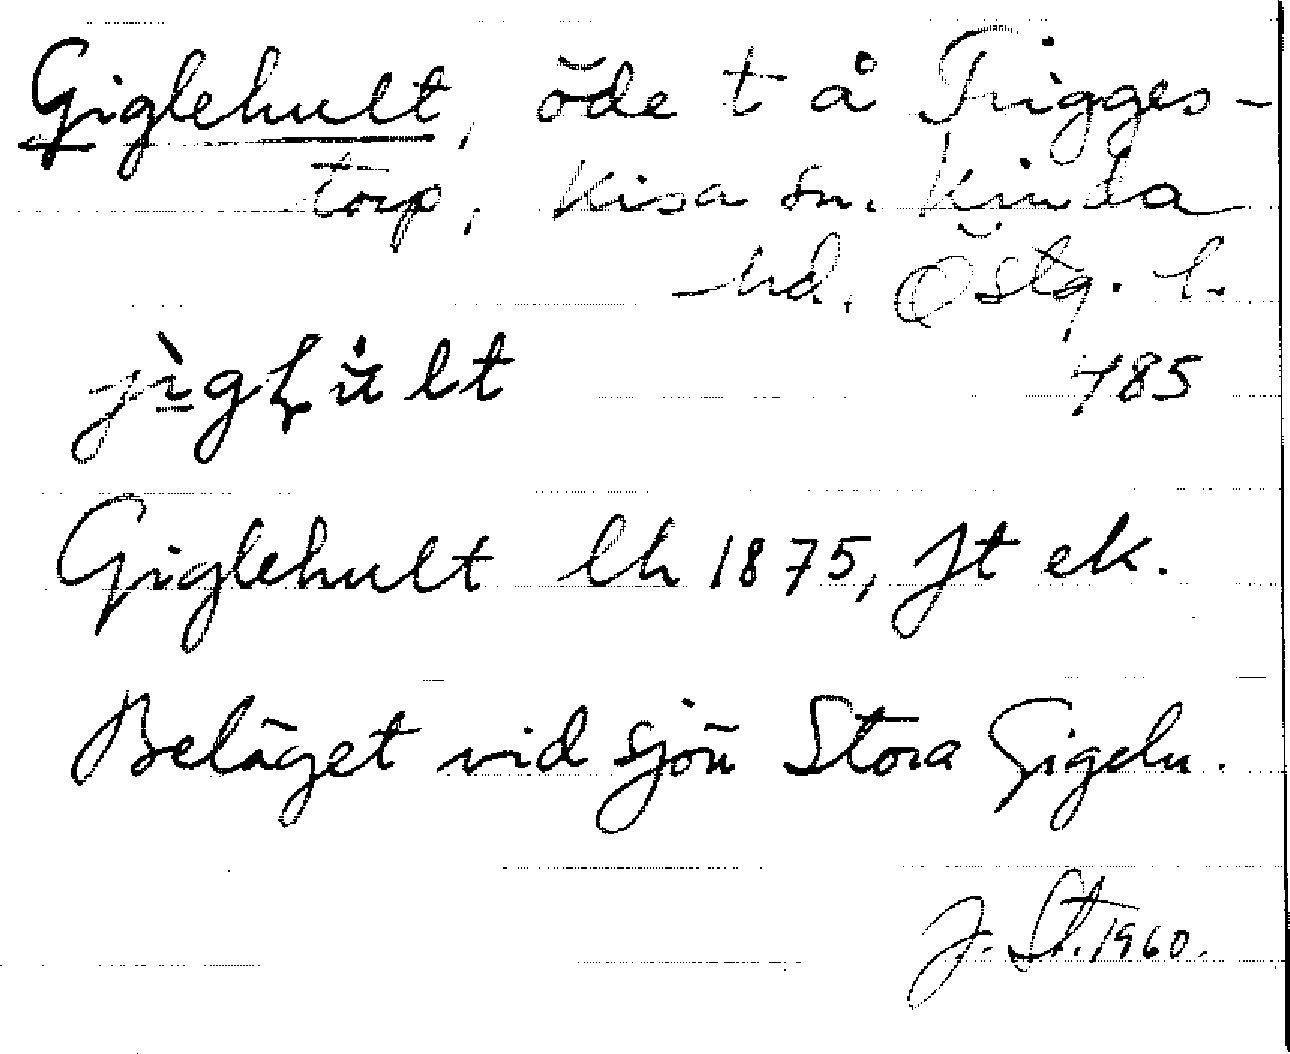 Giglehult, öde t å Trigges-
torp, Kisa sn. Kinda
hd. Östg. l.
485
Giglehult lh 1875, Jt ek.
Beläget vid sjön Stora Gigeln.
J. St. 1960.